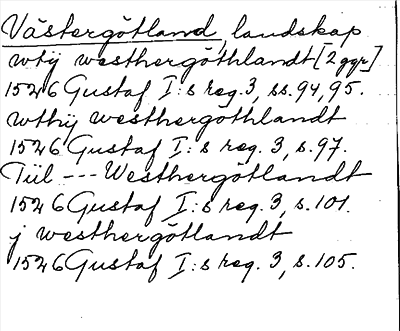 Västergötland, landskap
wtÿ westhergöthlandt [2 ggr]
1526 Gustaf I:s reg. 3, ss. 94, 95.
wthij westhergöthlandt
1526 Gustaf I:s reg. 3, s. 97.
Tiil --- Westhergötlandt
1526 Gustaf I:s reg. 3, s. 101.
j westhergötlandt
1526 Gustaf I:s reg. 3, s. 105.